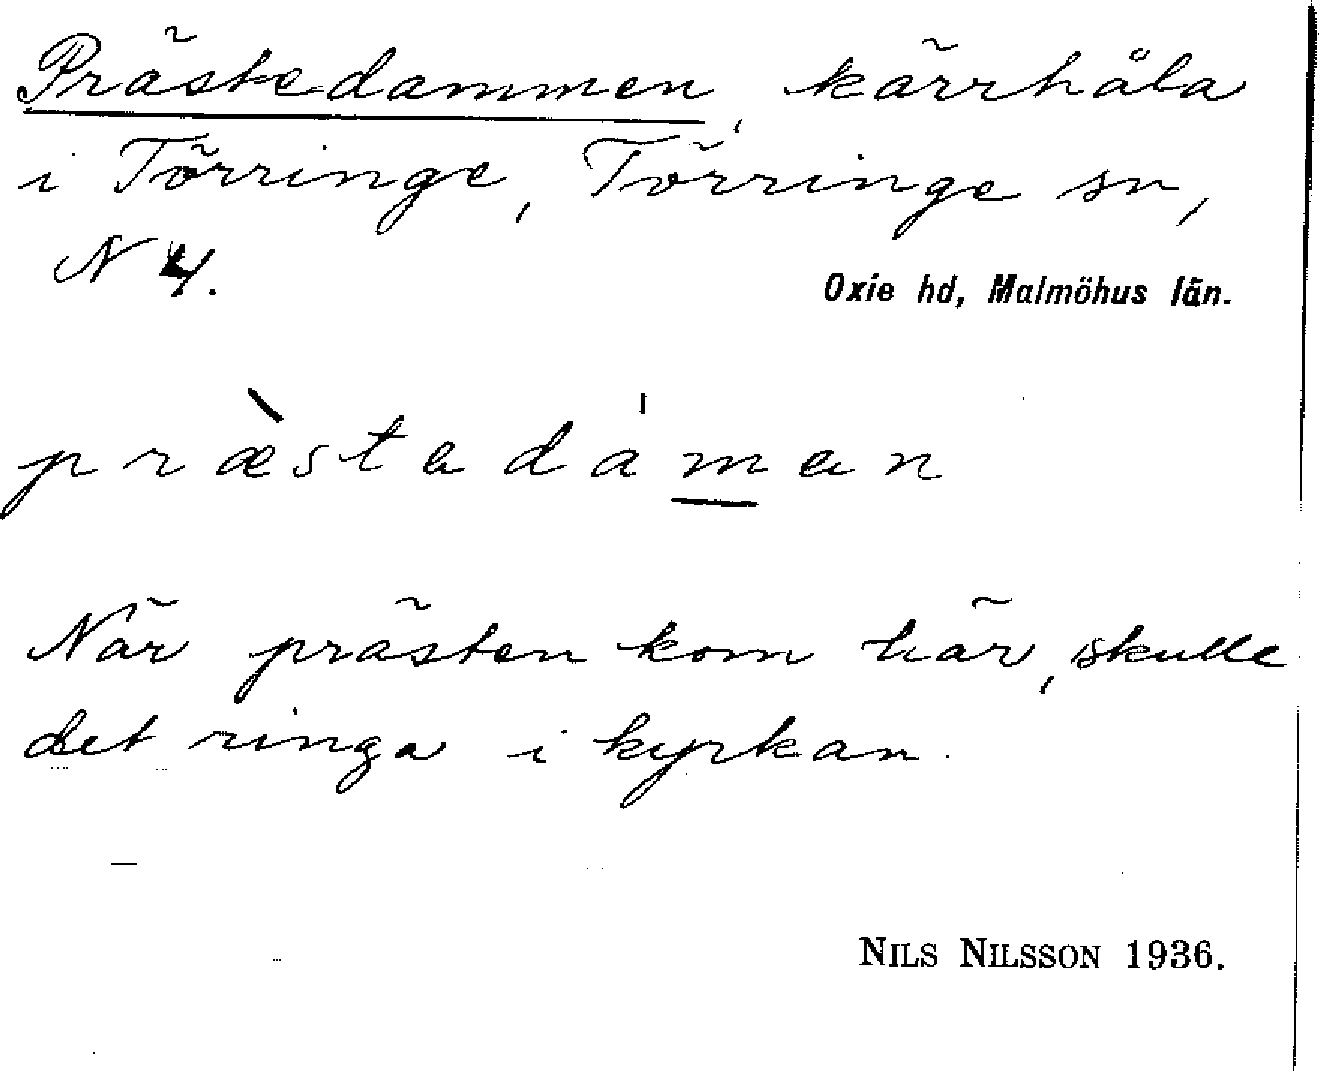 Prästedammen, kärrhåla
i Törringe, Törringe sn,
N 4.
Oxie hd, Malmöhus län.
præ̀stadáman
När prästen kom här, skulle
det ringa i kyrkan.
NILS NILSSON 1936.